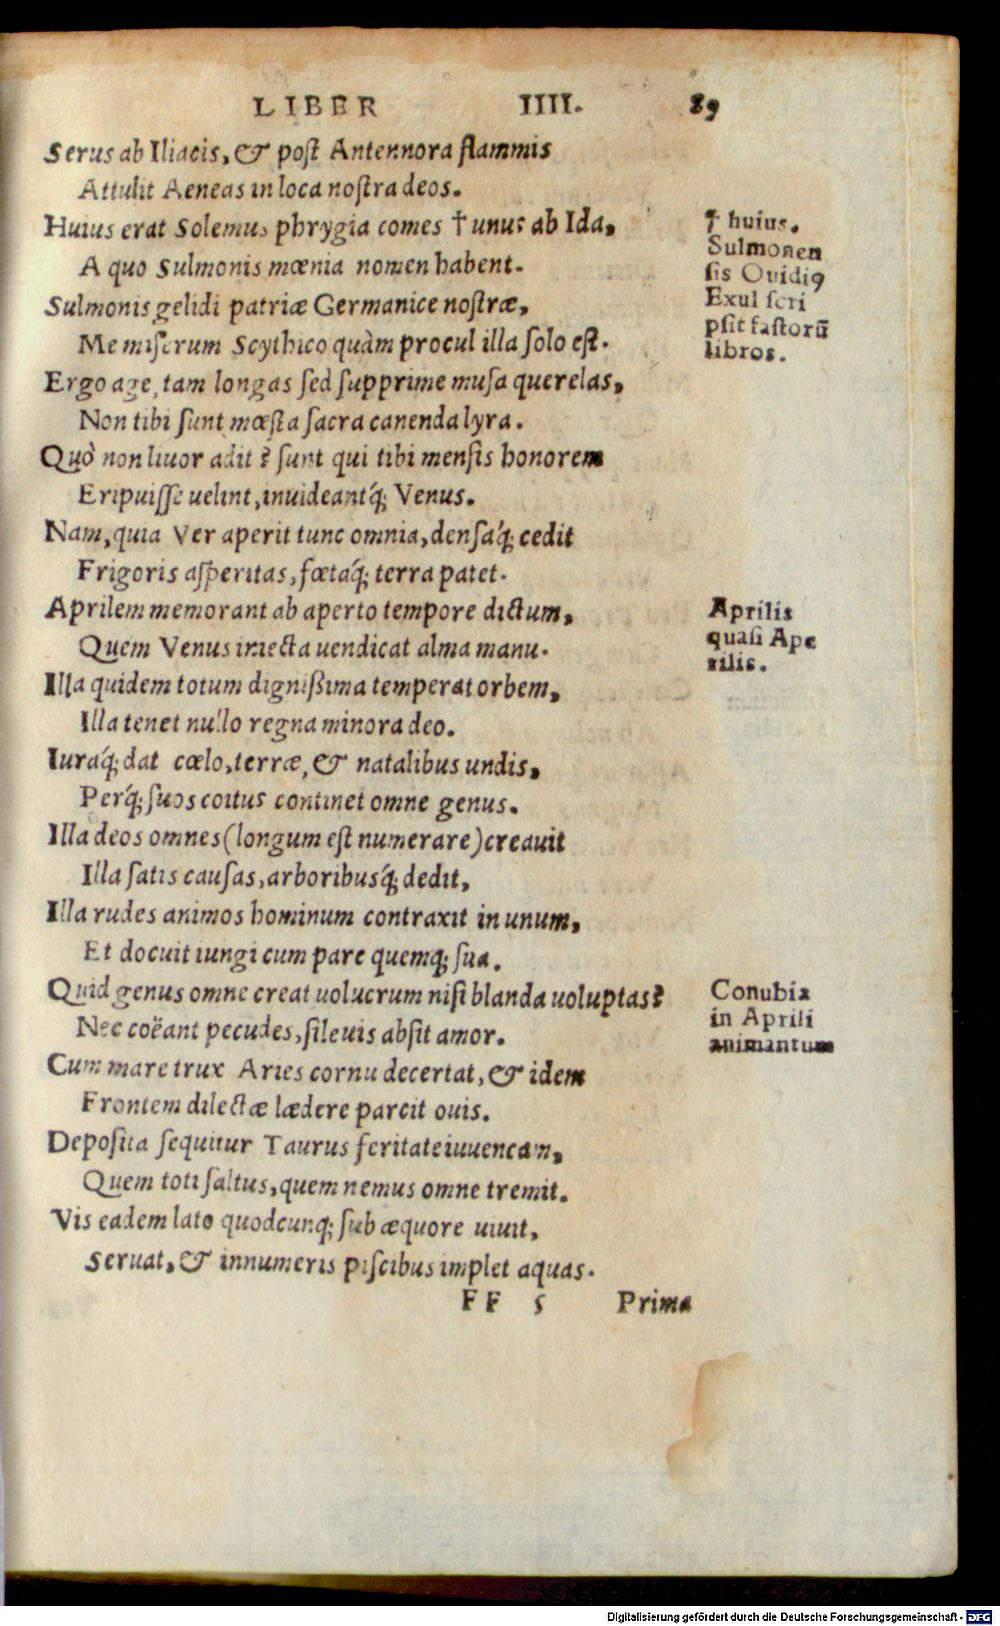 LIBER IIII. 89
Serus ab Iliacis, & poſt Antennora flammis
Attulit Aeneas in loca noſtra deos.
Huius erat Solemus phrygia comes † unus ab Ida,
A quo Sulmonis mœnia nomen habent.
Sulmonis gelidi patriæ Germanice noſtræ,
Me miſerum Scythico quàm procul illa ſolo eſt.
Ergo age, tam longas ſed ſupprime muſa querelas,
Non tibi ſunt mœſta ſacra canenda lyra.
Quò non liuor adit? ſunt qui tibi menſis honorem
Eripuiſſe uelint, inuideantq́; Venus.
Nam, quia Ver aperit tunc omnia, denſaq́; cedit
Frigoris aſperitas, fœtaq́; terra patet.
Aprilem memorant ab aperto tempore dictum,
Quem Venus iniecta uendicat alma manu.
Illa quidem totum digniſsima temperat orbem,
Illa tenet nullo regna minora deo.
Iuraq́; dat cœlo, terræ, & natalibus undis,
Perq́; ſuos coitus continet omne genus.
Illa deos omnes (longum eſt numerare) creauit
Illa ſatis cauſas, arboribusq́; dedit,
Illa rudes animos hominum contraxit in unum,
Et docuit iungi cum pare quemq; ſua.
Quid genus omne creat uolucrum niſi blanda uoluptas?
Nec coëant pecudes, ſi leuis abſit amor.
Cum mare trux Aries cornu decertat, & idem
Frontem dilectæ lædere parcit ouis.
Depoſita ſequitur Taurus feritate iuuencam,
Quem toti ſaltus, quem nemus omne tremit.
Vis eadem lato quodcunq; ſub æquore uiuit,
Seruat, & innumeris piſcibus implet aquas.
FF 5 Prima
† huius.
Sulmonen
ſis Ouidiꝰ
Exul ſcri
pſit faſtorũ
libros.
Aprilis
quaſi Ape
rilis.
Conubia
in Aprili
animantum
Digitalisierung gefördert durch die Deutsche Forschungsgemeinschaft - DFG